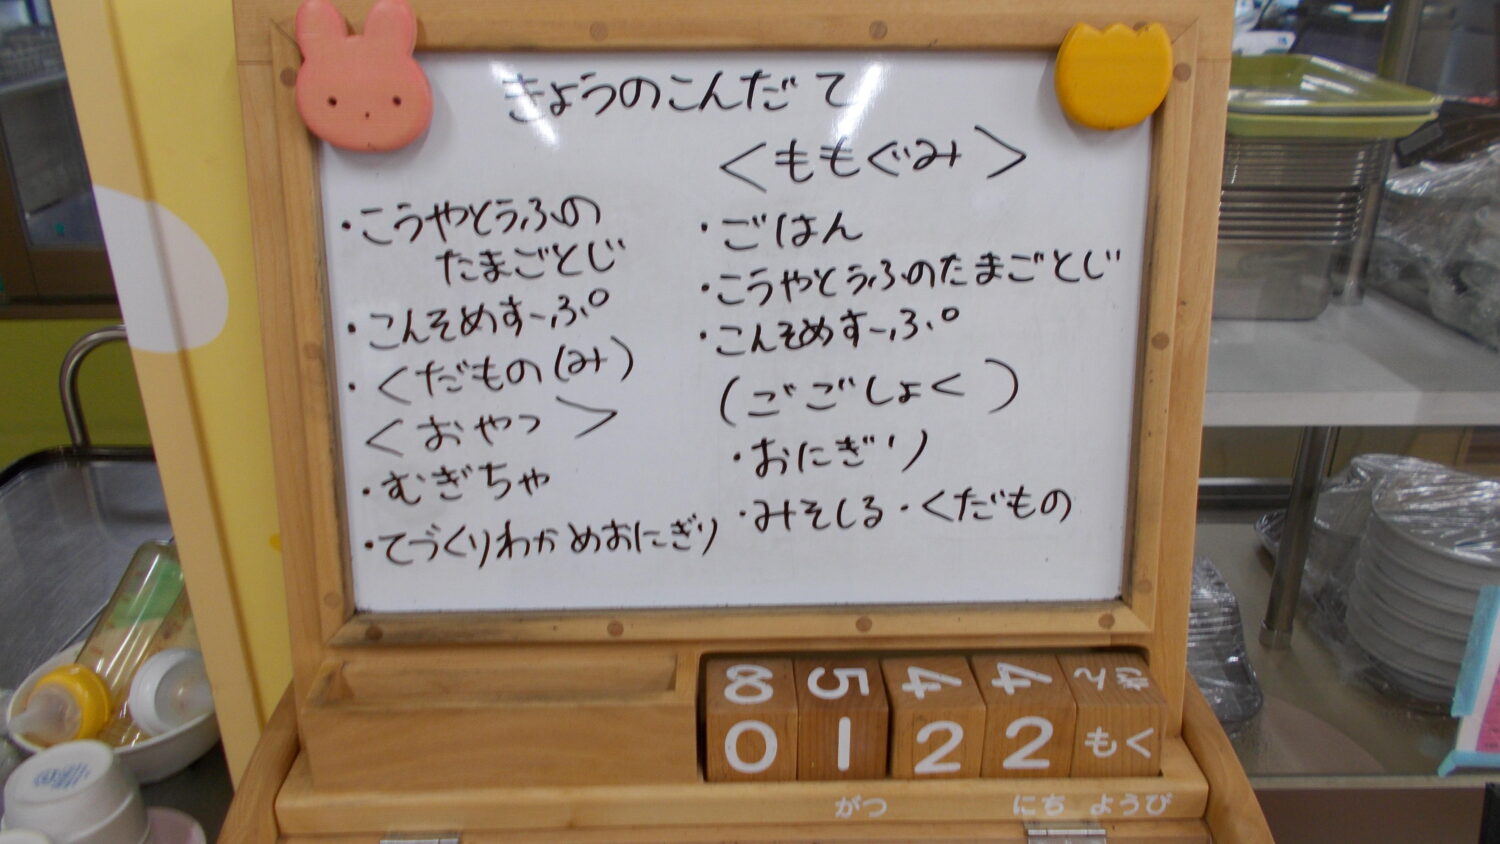 きょうのこんだて
・こうやとうふの
たまごとじ
・こんそめすーぷ
・くだもの(み)
<おやつ>
・むぎちゃ
・てづくりわかめおにぎり
<ももぐみ>
・ごはん
・こうやとうふのたまごとじ
・こんそめすーぷ
(ごごしょく)
・おにぎり
・みそしる・くだもの
8 5 4 4 きん
0 1 2 2 もく
がつ にち ようび